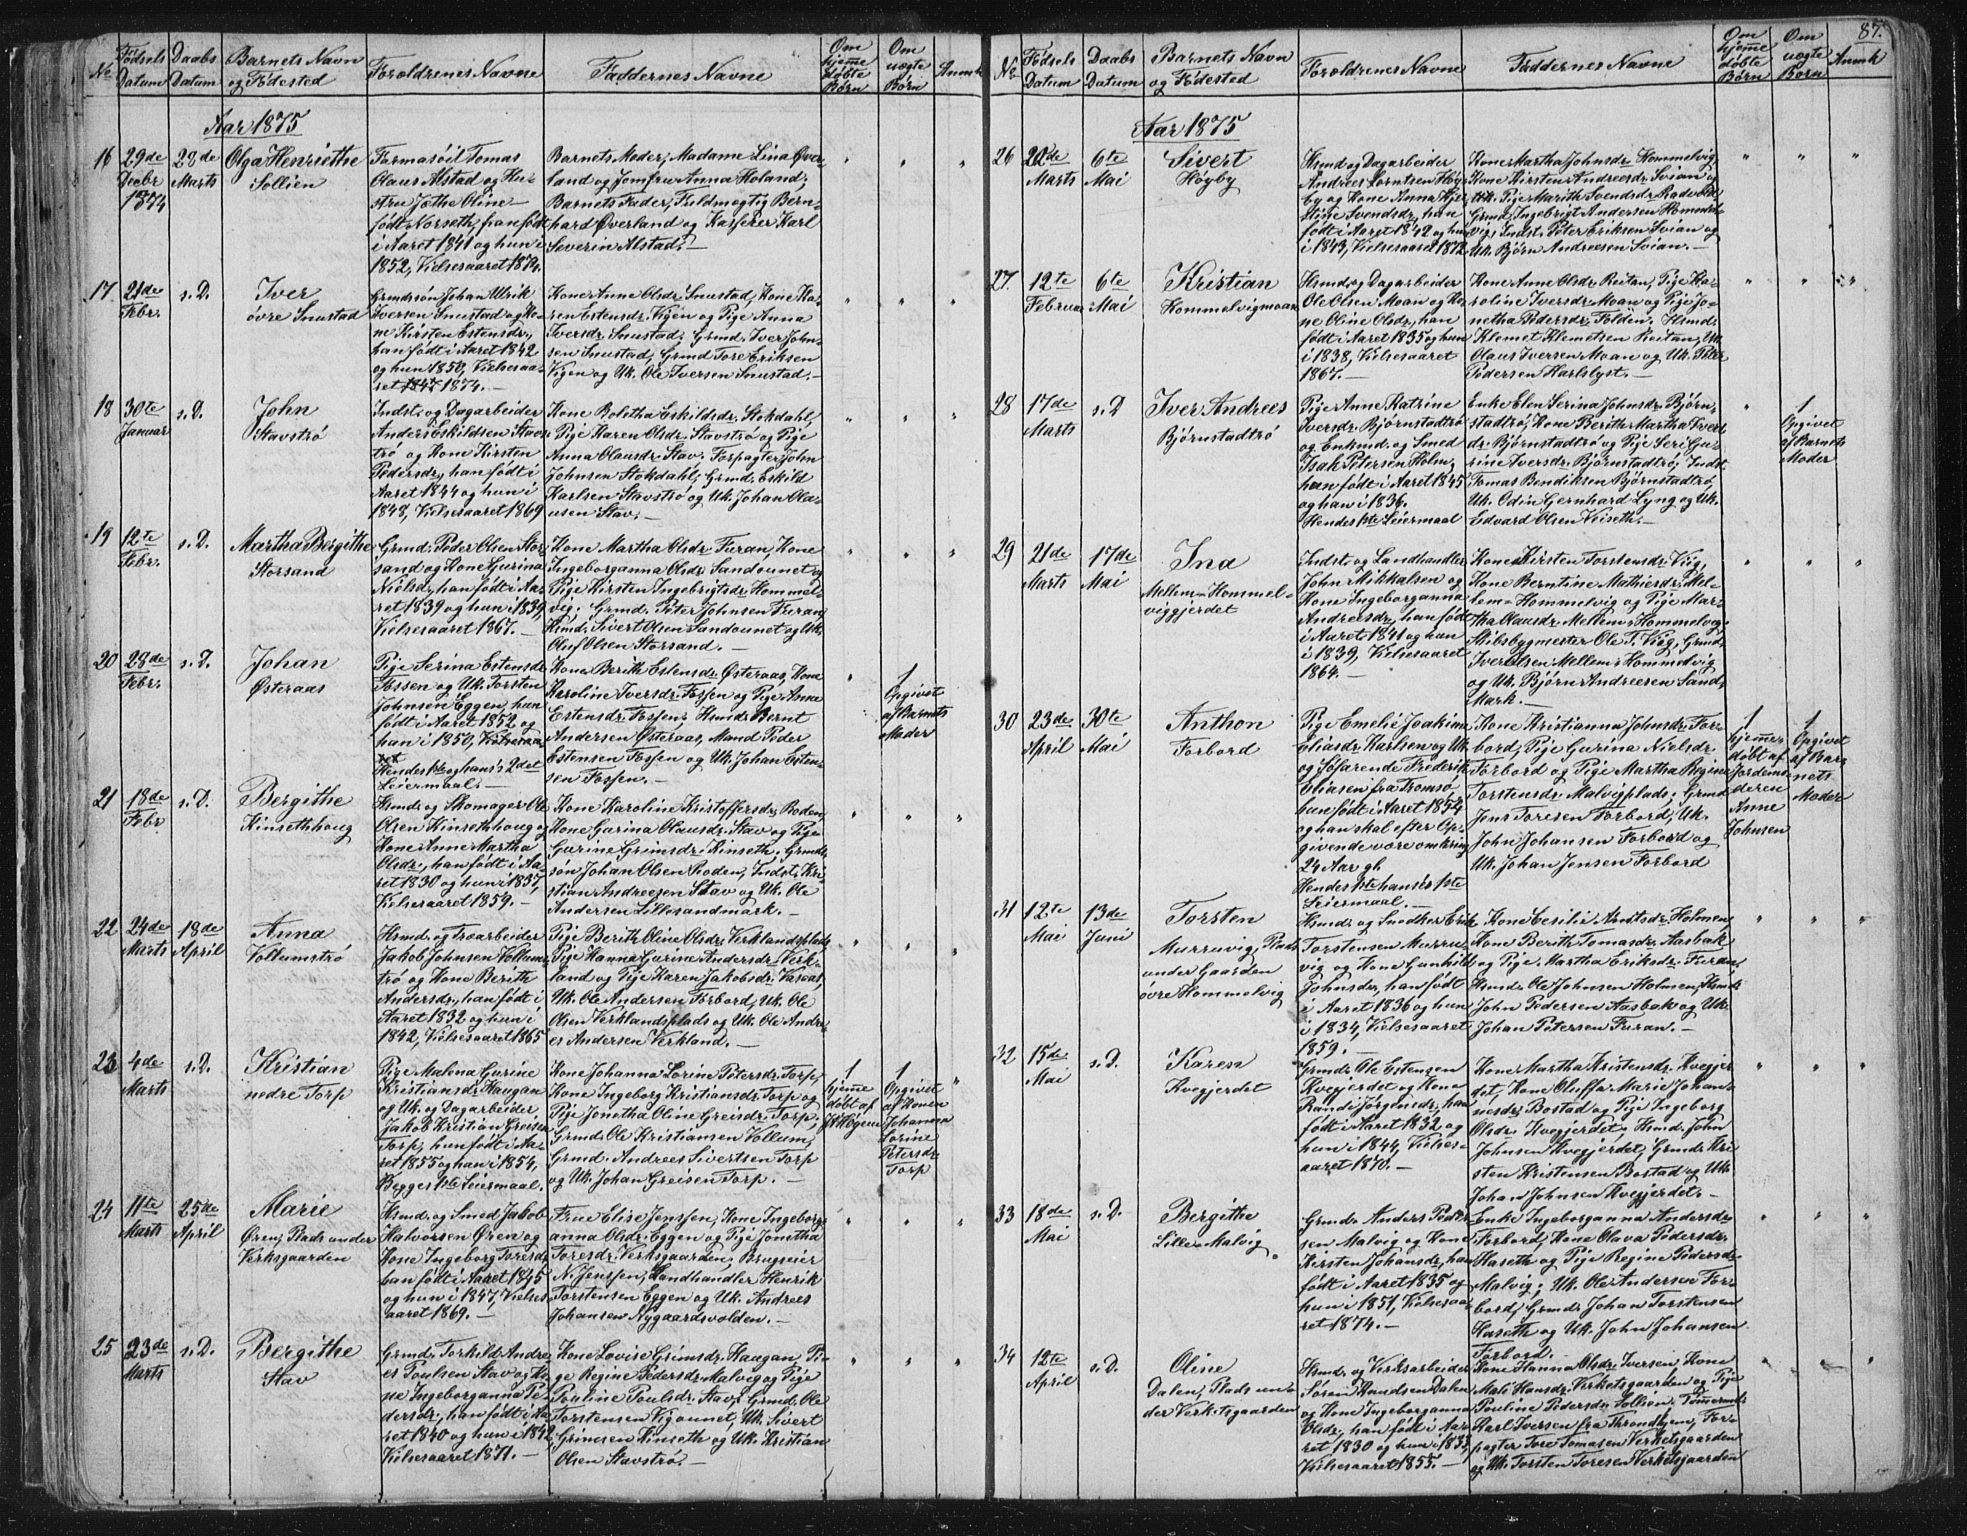 87.
No
Fødsels Datum
Daabs Datum
Barnets Navn og Fødested
Foreldrenes Navne
Faddernes Navne
Om hjemme døbte Børn
Om uægte Børn
Anmk
Aar 1875
16
29de Decbr 1874
28de Marts
Olga Henriethe
Sollien
Olaus Alstad og Hu-
stru Jøthe Oline
født Norseth, han født
i Aaret 1841 og hun i
1852, Vielsesaaret 1874.
Barnets Moder, Madame Lina Øver-
land og Jomfru Anna Holand;
Barnets Fader, Fuldmægtig Bern-
hard Øverland og Kasserer Karl
Severin Alstad.—
17
21de Febr.
s. D.
Iver
øvre Snustad
Grmdssøn Johan Ulrik
Iversen Snustad og Ko-
ne Kirsten Estensdr.,
han født i Aaret 1842
og hun 1850, Vielsesaa-
ret 1874.—
Kone Anne Olsdr. Snustad, Kone Ka-
ren Estensdr. Vigen og Pige Anna
Iversdr. Snustad; Grmd. Iver John-
sen Snustad, Grmd Tore Eriksen
Vigen og Uk. Ole Iversen Snustad.—
18
30te Januar
s. D.
John
Stavstrø
Indst. og Dagarbeider
Anders Eskildsen Stavs-
trø og Kone Kirsten
Pedersdr., han født i
Aaret 1844 og hun i
1848, Vielsesaaret 1869
Kone Boletha Eskildsdr. Stokdahl,
Pige Karen Olsdr. Stavstrø og Pige
Anna Olausdr. Stav; Forpagter John
Johnsen Stokdahl; Grmd. Eskild
Karlsen Stavstrø og Uk. Johan Ola-
usen Stav.—
19
12te Febr.
s. D.
Martha Bergithe
Storsand
Grmd. Peder Olsen Stor-
sand og Kone Gurina
Nielsdr., han født i Aa-
ret 1839 og hun i 1839,
Vielsesaaret 1867.—
Kone Martha Olsdr. Furan, Kone
Ingeborganna Olsdr. Sandounet og
Pige Kirsten Ingebrigtsdr. Hommel-
vig; Grmd. Peter Johnsen Furan
Hsmd. Sivert Olsen Sandounet og Uk.
Oluf Olsen Storsand.—
20
28de Febr.
s. D.
Johan
Østeraas
Pige Serina Estensdr.
Fossen og Uk. Torsten
Johnsen Eggen, hun
født i Aaret 1852 og
han i 1850, Vielsesaa-
ret
Hendes 1ste og hans's 2det
Leiermaal.—
Kone Berith Estensdr. Østeraas, Kone
Karoline Iversdr. Fossen og Pige Anna
Estensdr. Fossen; Hsmd. Bernt
Andersen Østeraas, Mand Peder
Estensen Fossen og Uk. Johan Esten-
sen Fossen.—
1
Opgivet
af Barnets
Moder
21
18de Febr
s. D.
Bergithe
Kinsethhoug
Hsmd. og Skomager Ole
Olsen Kinsethhoug og
Kone Anne Martha
Olsdr., han født i Aa-
ret 1830 og hun i 1837,
Vielsesaaret 1859.—
Kone Karoline Kristoffersdr. Roden,
Kone Gurina Olausdr. Stav og Pige
Gurine Grimsdr. Kinseth; Grmds-
søn Johan Olsen Roden, Indst. Kri-
stian Andreesen Stav og Uk. Ole
Andersen Lillesandmark.—
22
24de Marts
18de April
Anna
Vollumstrø
Hsmd. og Træarbeider
Jakob Johnsen Vollums-
trø og Kone Berith
Andersdr., han født i
Aaret 1832 og hun i
1842, Vielsesaaret 1865
Pige Berith Oline Olsdr. Verklandsplads
Pige Hanna Gurine Andersdr. Verk-
land og Pige Karen Jakobsdr. Vaseas
Uk. Ole Andersen Forbord, Uk. Ole
Olsen Verklandsplads og Uk. Ole Andre-
es Andersen Verkland.—
23
4de Marts
s. D.
Kristian
nedre Torp
Pige Malena Gurine
Kristiansdr. Haugan
og Uk. og Dagarbeider
Jakob Kristian Greisen
Torp, hun født i Aa-
ret 1855 og han i 1854,
Begges 1ste Leiermaal.
Kone Johanna Lorine Petersdr. Torp,
Kone Ingeborg Kristiansdr. Torp og
Pige Jonetha Oline Greisdr. Torp;
Grmd. Ole Kristiansen Vollum,
Grmd. Andrees Sivertsen Torp
og Uk. Johan Greisen Torp.—
1
hjemme
døbt af
1
Opgivet
af Konen
Johanna
Lorine
Petersdr.
Torp
24
11te Marts
25de April
Marie
Øren, Plads under
Verksgaarden
Hsmd. og Smed Jakob
Halvorsen Øren og
Kone Ingeborg Toresdr.
han født i Aaret 1845
og hun i 1847, Vielses-
aaret 1869.—
Frue Elise Jenssen, Kone Ingeborg-
anna Olsdr. Eggen og Pige Jonetha
Toresdr. Verksgaarden; Brugseier
N. Jenssen, Handhandler Henrik
Torstensen Eggen og Uk. Andrees
Johansen Nygaardsvolden.—
25
23de Marts
s. D.
Bergithe
Stav
Grmd. Torkild Andre-
es Poulsen Stav og Ko-
ne Ingeborganna Pe-
dersdr., han født i Aa-
ret 1840 og hun i 1842,
Vielsesaaret 1871.—
Kone Lovise Grimsdr. Haugan, Pi-
ge Regine Pedersdr. Malvig og Pige
Pauline Poulsdr. Stav; Grmd. Ole
Torstensen Vigounet, Uk. Sivert
Grimsen Kinseth og Uk. Kristian
Olsen Stavstrø.—
No
Fødsels Datum
Daabs Datum
Barnets Navn og Fødested
Foreldrenes Navne
Faddernes Navne
Om hjemme døbte Børn
Om uægte Børn
Anmk
Aar 1875
26
22de Marts
6te Mai
Sivert
Høyby
Hsmd og Dagarbeider
Andrees Lorntsen Høy-
by og Kone Anna Kjer-
stine Svendsdr., han
født i Aaret 1842 og hun
i 1843, Vielsesaaret 1872
Kone Martha Johnsdr. Hommelvig,
Kone Kirsten Andreesdr. Svian og
Pige Marith Svendsdr.
Grmd. Ingebrigt Andersen Hommel-
vig, Indst. Peter Eriksen Svian og
Uk. Bjørn Andreesen Svian.—
27.
12te Februar
6te Mai
Kristian
Hommelvigmoan
Hsmd. og Dagarbeider
Ole Olsen Moan og Ko-
ne Oline Olsdr., han
født i Aaret 1835 og hun
i 1838, Vielsesaaret
1867.—
Kone Anne Olsdr. Reitan, Pige Ka-
roline Iversdr. Moan og Pige Jo-
netha Pedersdr. Folden; Hsmd.
Klemet Klemetsen Reitan, Uk.
Olaus Iversen Moan og Uk. Peter
Pedersen Karlslyst.—
28
17de Marts
s. D
Iver Andrees
Bjørnstadtrø
Pige Anne Katrine
Iversdr. Bjørnstadtrø
og Enkmd. og Smed
Isak Petersen Holm,
hun født i Aaret 1845
og han i 1836.
Hendes 1ste Leiermaal
Enke Elen Serina Johnsdr. Bjørn-
stadtrø, Kone Berith Martha Ivers-
dr. Bjørnstadtrø og Pige Seri Gu-
rine Iversdr. Bjørnstadtrø; Indst.
Tomas Bendiksen Bjørnstadtrø,
Uk. Odin Gernhard Lyng og Uk.
Edvard Olsen Viseth.—
1
Opgivet
af Barnets
Moder
29
21de Marts
17de Mai
Ina
Mellem-Hommel-
viggjerdet
Indst. og Landhandler
John Mikkalsen og
Kone Ingeborganna
Andreesdr., han født
i Aaret 1841 og hun
i 1839, Vielsesaaret
1864.—
Kone Kirsten Torstensdr. Viig,
Kone Berntine Mathisdr. Mel-
lem-Hommelvig og Pige Mar-
tha Olausdr. Mellem-Hommelvig;
Skibsbygmester Ole T. Viig, Grmd.
Iver Olsen Mellem-Hommelvig
og Uk. Bjørn Andreesen Sand-
Mark.—
30
23de April
30te Mai
Anthon
Forbord
Pige Emelie Joakima
Eliasdr. Karlsen og Uk.
og Søfarende Frederik
Eliasen fra Tromsø
hun født i Aaret 1854
og han skal efter Op-
givende være omkring
24 Aar gl.
Hendes 1ste hans's 1ste
Leiermaal.—
Kone Kristianna Johnsdr. For-
bord, Pige Gurina Nielsdr.
Forbord og Pige Martha Regina
Torstensdr. Malvigplads; Grmd
Jens Toresen Forbord, Uk.
John Johansen Forbord og
Uk. Johan Jensen Forbord
1
hjemme-
døbt af
Jordemo-
deren
Anne
Johnsen
1
Opgivet
af Bar-
nets
Moder
31
12te Mai
13de Juni
Torsten
Murruvig, Plads
under Gaarden
øvre Hommelvig
Hsmd. og Snedker Erik
Torstensen Murru-
vig og Kone Gunhild
Johnsdr., han født
i Aaret 1836 og hun
i 1834, Vielsesaaret
1859.—
Kone Cesilie Arntsdr. Holmen
Kone Berith Tomasdr. Aasbak
og Pige Martha Eriksdr. Furan,
Hsmd. Ole Johnsen Holmen, Hsmd.
John Pedersen Aasbak og Uk.
Johan Petersen Furan.—
32
15de Mai
s. D.
Karen
Kvegjerdet
Grmd. Ole Estensen
Kvegjerdet og Kone
Randi Jørgensdr., han
født i Aaret 1832 og
hun i 1844, Vielses-
aaret 1870.—
Kone Martha Kristensdr. Kvegjer-
det, Kone Oluffa Marie Johan-
nesdr. Bostad og Pige Ingeborg
Olsdr. Kvegjerdet; Hsmd. John
Johnsen Kvegjerdet, Grmd. Kri-
sten Kristensen Bostad og Uk.
Johan Johnsen Kvegjerdet.—
33
18de Mai
s. D.
Bergithe
Lille-Malvig
Grmd. Anders Peder-
sen Malvig og Kone
Kirsten Johansdr., han
født i Aaret 1835 og
hun i 1851, Vielsesaa-
ret 1874.—
Enke Ingeborganna Andersdr.
Forbord, Kone Olava Pedersdr.
Haseth og Pige Regine Pedersdr.
Malvig; Uk. Ole Andersen For-
bord, Grmd. Johan Torstensen
Haseth og Uk. John Johansen
Forbord.—
34
12te April
s. D.
Oline
Dalen, Plads un-
der Verketsgaarden
Hsmd. og Verksarbeider
Søren Knudsen Dalen
og Kone Ingeborganna
Olsdr., han født i Aa-
ret 1830 og hun i 1833,
Vielsesaaret 1855.—
Kone Hanna Olsdr. Iversen, Kone
Mali Hansdr. Verketsgaarden og Pige
Pauline Pedersdr. Sollien; Tømermd.
Karl Iversen fra Throndhjem, For-
pagter Tore Tomasen Verketsgaarden
og Uk. Torsten Toresen Verketsgaarden